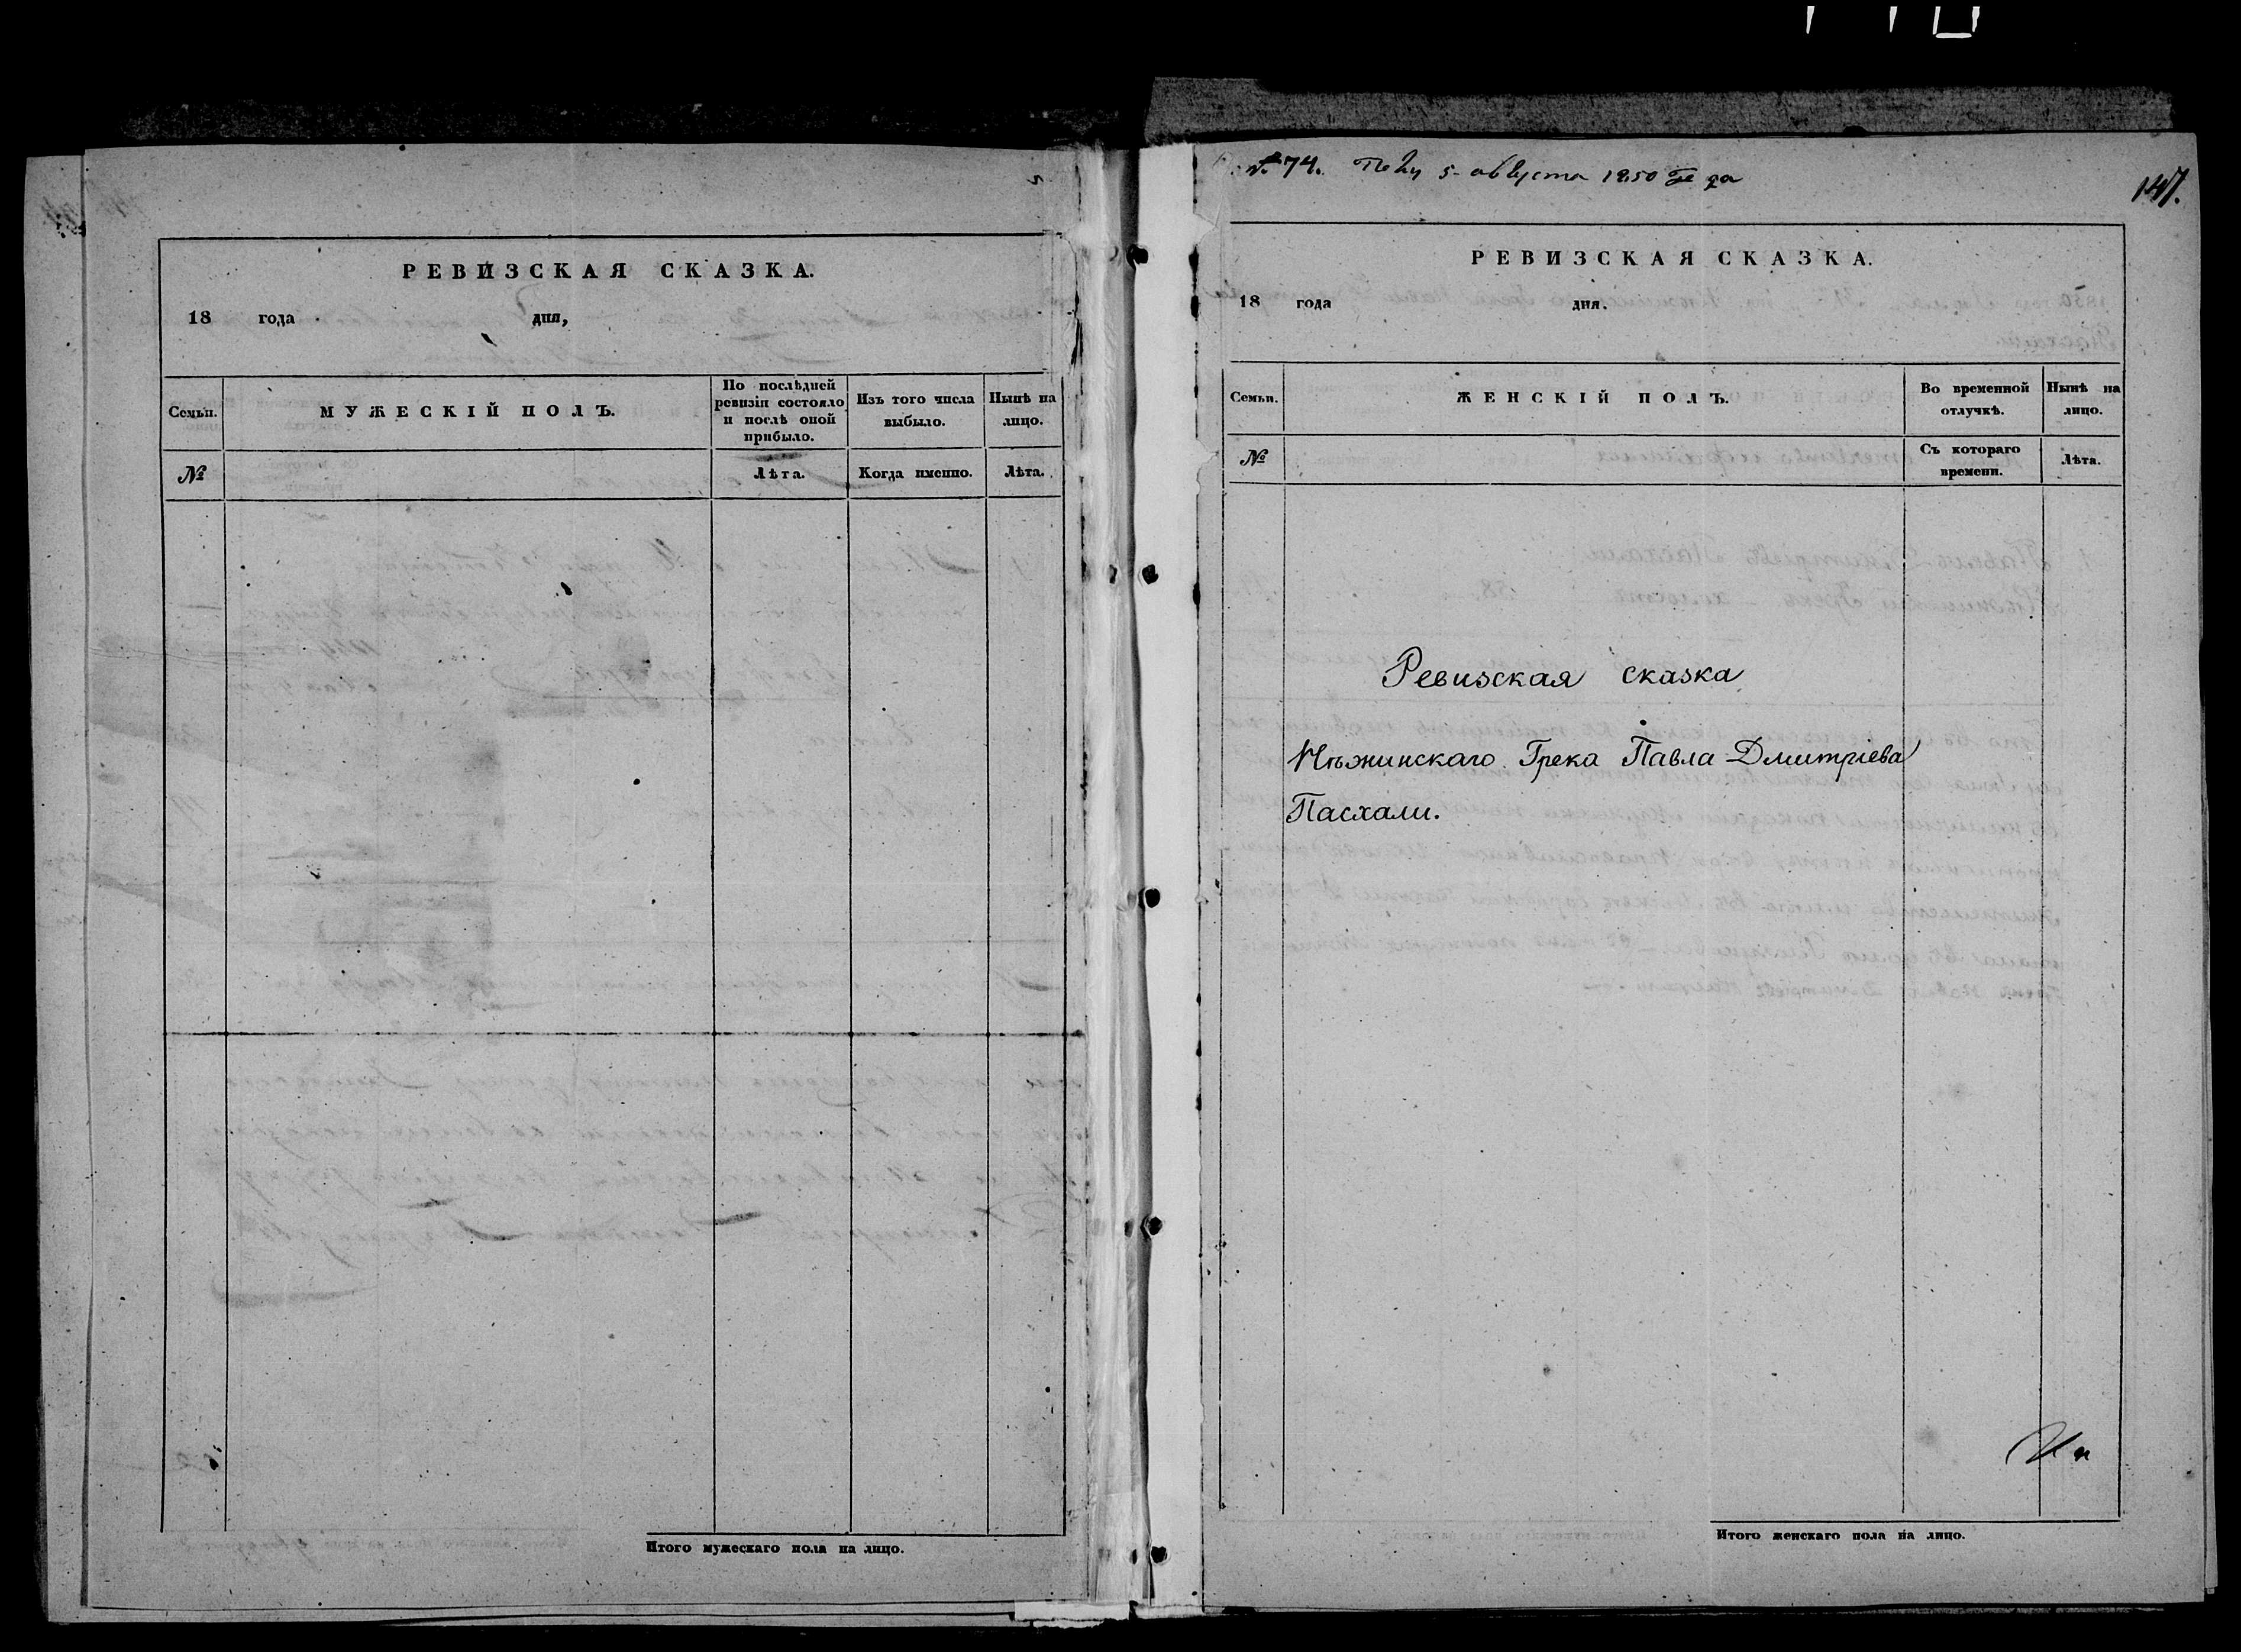 РЕВИЗСКАЯ СКАЗКА.
18 года дня,
Семьи.
МУЖЕСКІЙ ПОЛЪ.
По послѣдней
ревизіи состояло
и послѣ оной
прибыло.
Изъ того числа
выбыло.
Нынѣ на
лицо.
№
Лѣта.
Когда именно.
Лѣта.
Итого мужескаго пола на лицо.
№ 74. 5 августа 1850 года
147.
РЕВИЗСКАЯ СКАЗКА.
18 года дня.
Семьи.
ЖЕНСКІЙ ПОЛЪ.
Во временной
отлучкѣ.
Нынѣ на
лицо.
№
Съ котораго
времени.
Лѣта.
Ревизская сказка
Нѣжинскаго Грека Павла Дмитріева
Пасхали.
Итого женскаго пола на лицо.